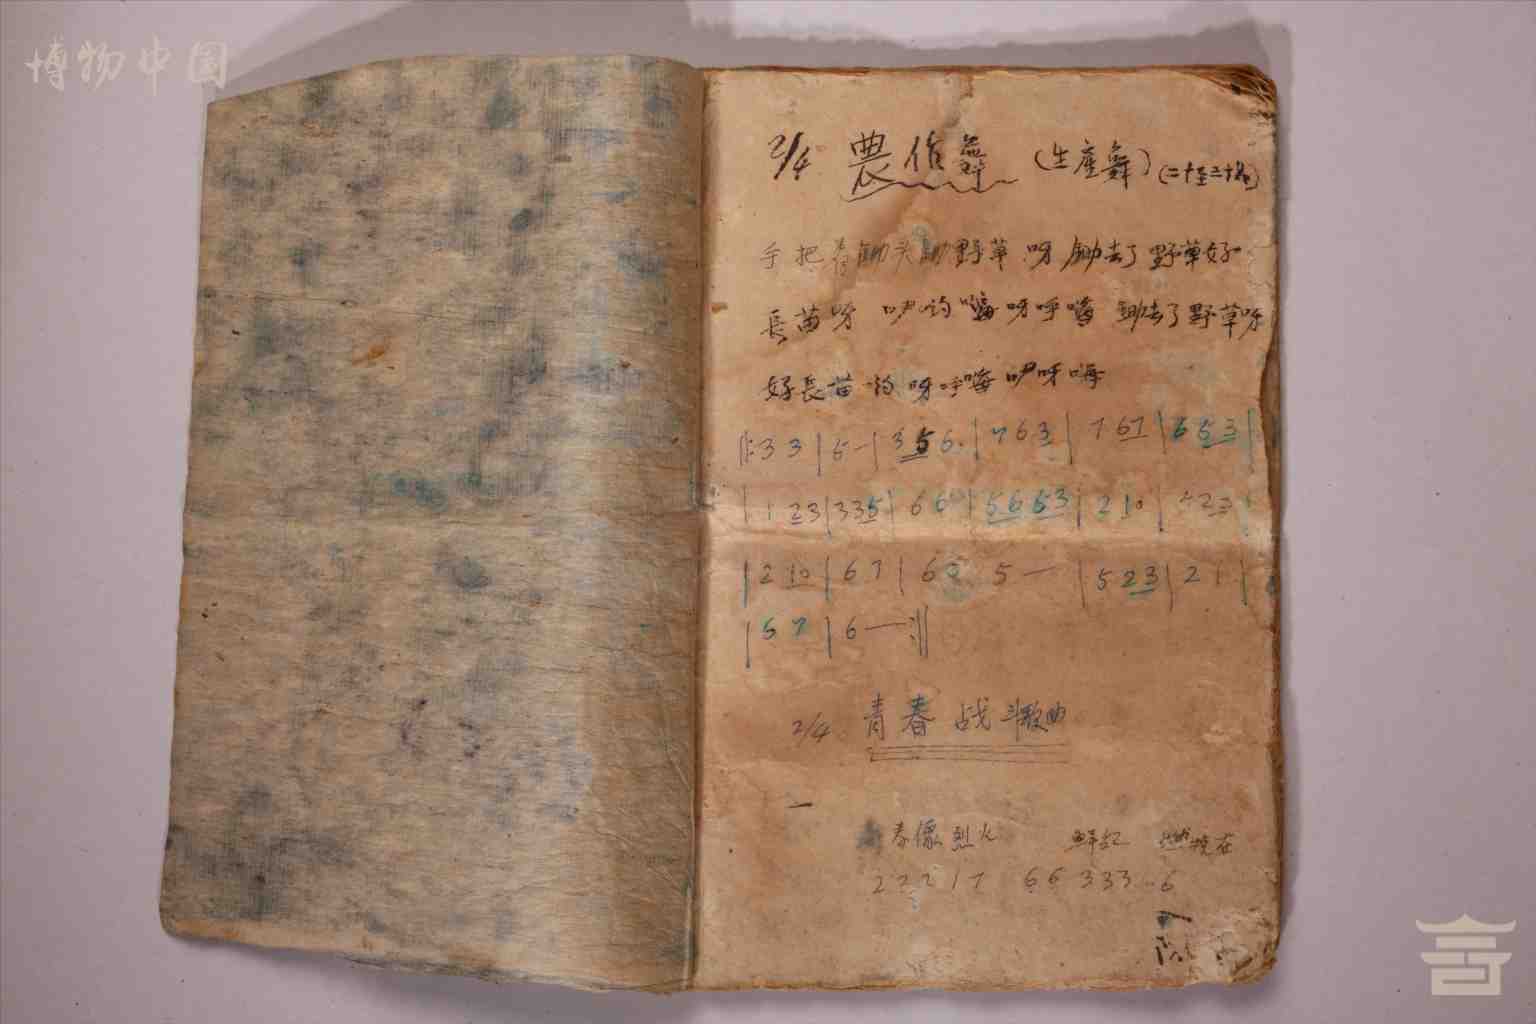 博物中国
2/4 農作舞 (生產舞) (二十至三十名)
手把着鋤头鋤野草呀鋤去了野草好
長苗呀 咿哟嗨呀呼嗨 鋤去了野草呀
好長苗哟呀呼嗨咿呀嗨
‖:3 3|5—|3 5 6.|7 6 3|7 6 7|6 5 3|
|1 2 3|3 3 5|6 6|5 6 5 3|2 1 0|5 2 3|
|2 1 0|6 7|6 0 5—|5 2 3|2 1|
|5 7|6—:‖
2/4 青春战斗歌曲
春像烈火 鮮红 燃烧在
2 2 2 1 7 6 6 3 3 3 6